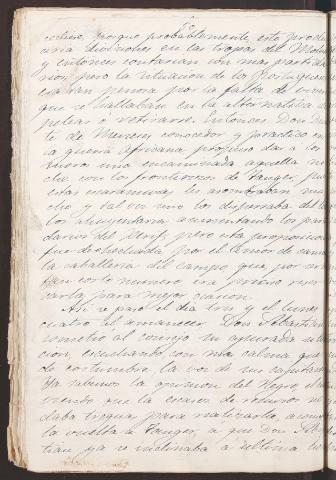 porque probablemente esto
una disensiones en las tropas del
y entonces contarian con mas
pero la situacion de los Portugueses
era tan penosa por la falta de
que se hallaban en la alternativa de
pelear ó retirarse. Entonces Don
te de Meneses conocedor y practico en
la guerra Africana propuso dar a los
Moros una encamisada aquella no
che con los fronterizos de Tanger, pues
estas escaramuzas les asombraban mu
cho y tal vez
los ahuyentaria aumentando los parti
darios del Xerif, pero esta proposicion
fue desechada por el temor de cansar
la caballeria del campo que por ser
tan corto numero era preciso reser
varla para mejor ocasion.
Asi se pasó el dia tres y el lunes
cuatro al amanecer, Don Sebastian
sometio al consejo su apurada situa
cion, escuchando con mas calma que
de costumbre la voz de sus capitanes.
Ya sabemos la opinion del Negro,
viendo que la escasez de recursos no
daba tregua para realizarla,
la vuelta a Tanger, á que Don Sebas
tian ya se inclinaba á ultima